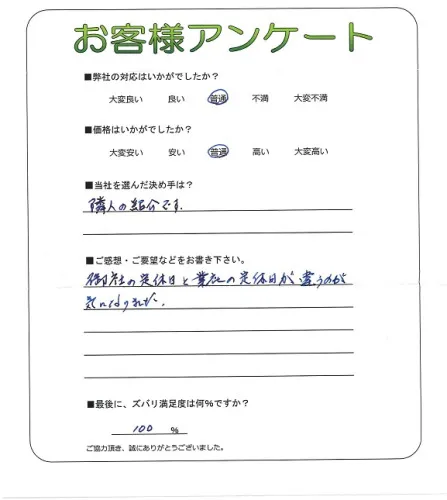 お客様アンケート
■弊社の対応はいかがでしたか？
大変良い 良い 普通 不満 大変不満
■価格はいかがでしたか？
大変安い 安い 普通 高い 大変高い
■当社を選んだ決め手は？
隣人の紹介です.
■ご感想・ご要望などをお書き下さい。
御社の定休日と業社の定休日が違うのが
気になりました.
■最後に、ズバリ満足度は何％ですか？
100 ％
ご協力頂き、誠にありがとうございました。